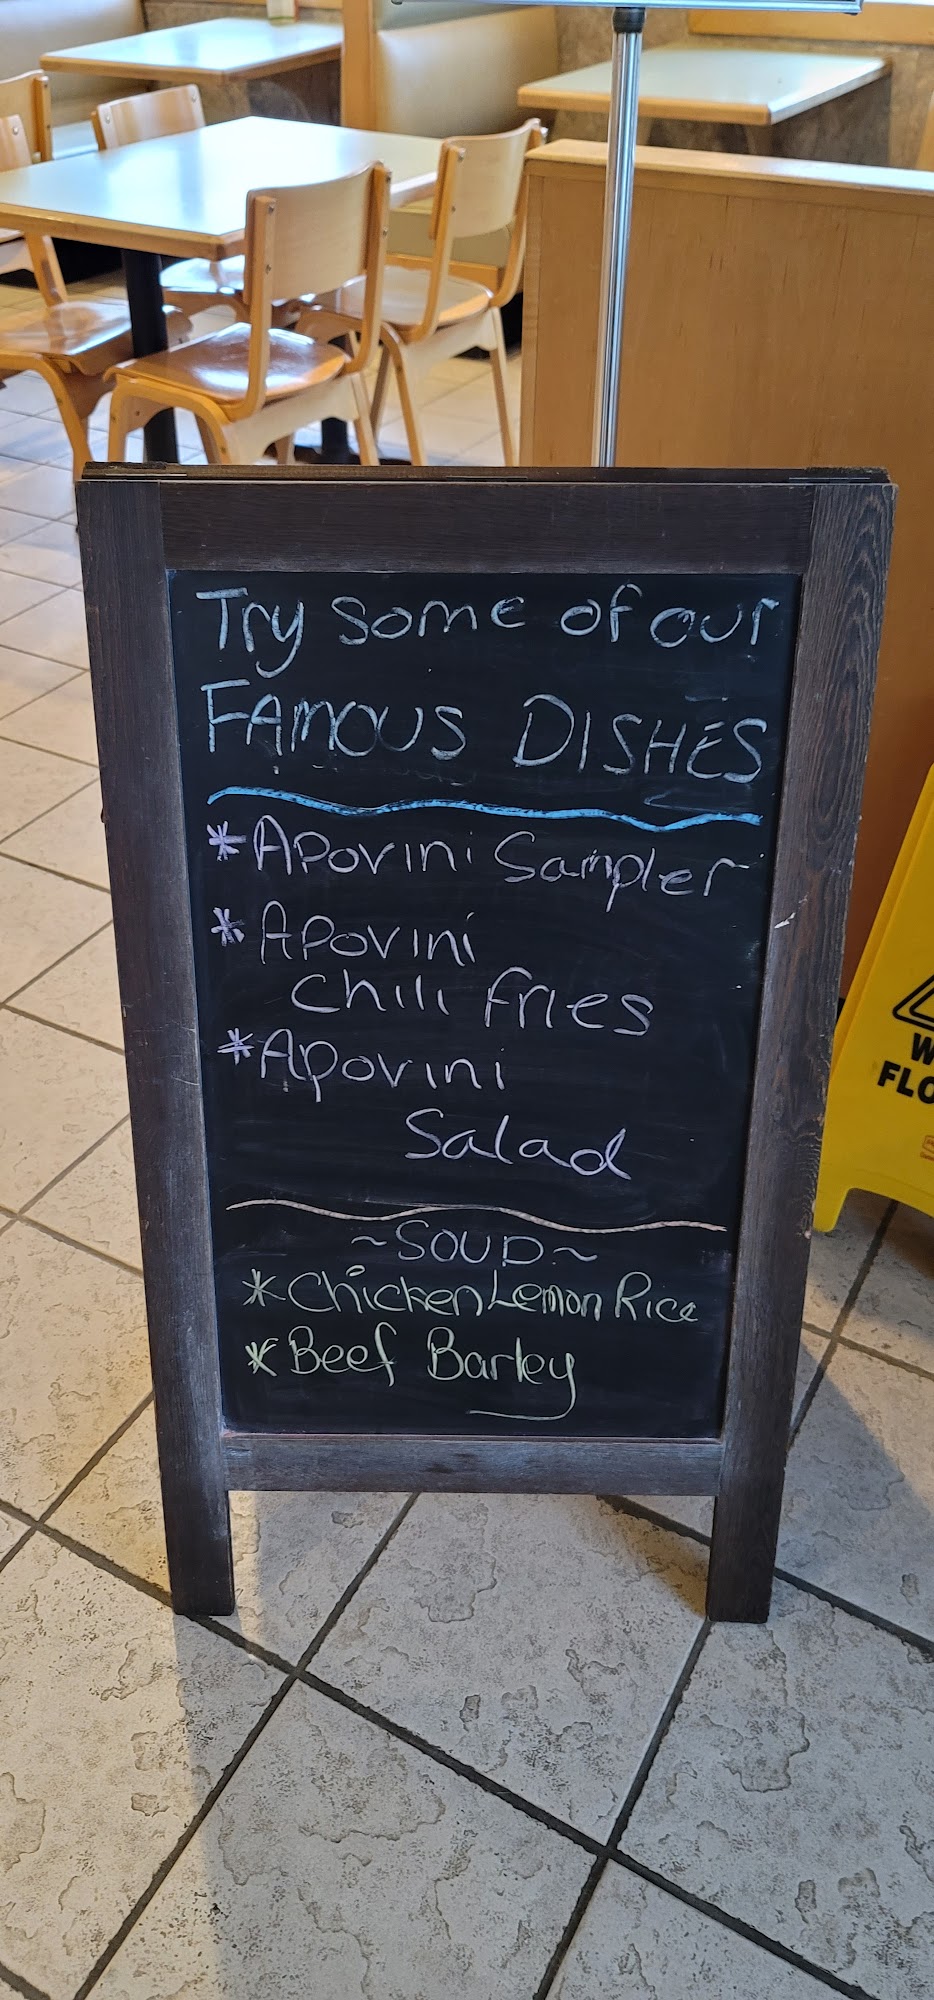 Try some of our
FAMOUS DISHES
*Apovini Sampler
*Apovini
chili fries
*Apovini
Salad
~SOUP~
*Chicken Lemon Rice
*Beef Barley
W
FLO